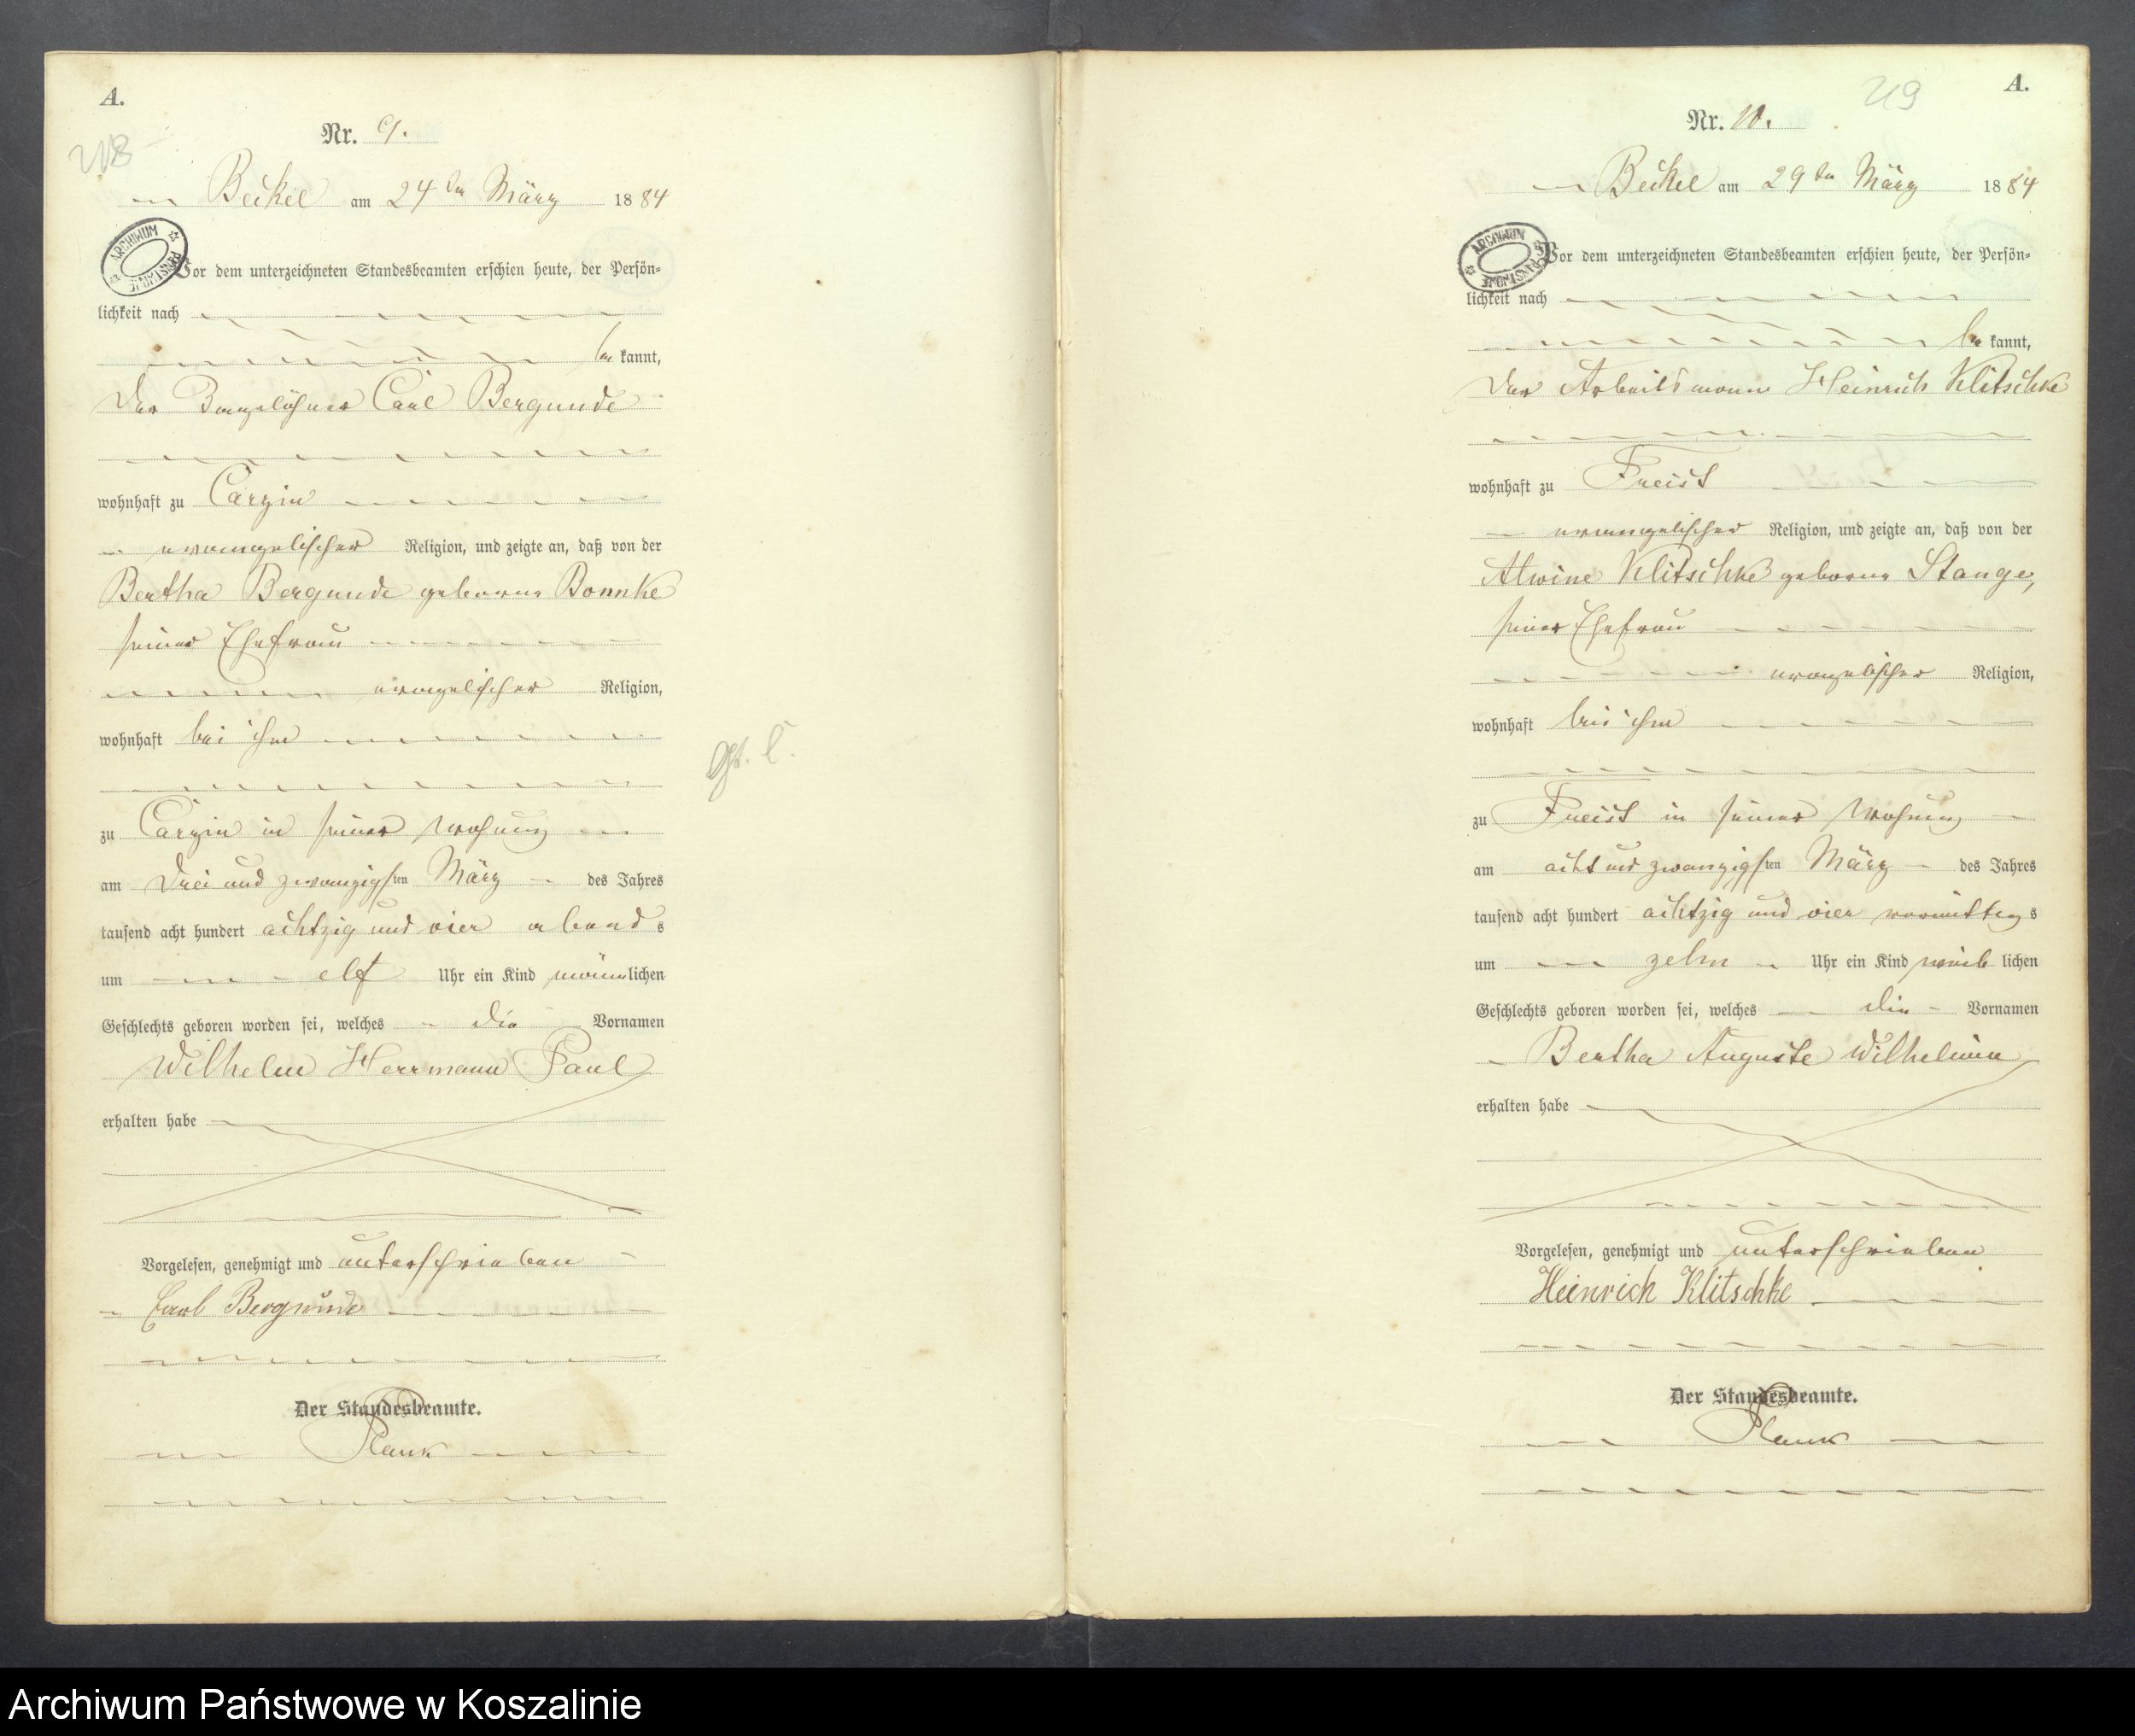 A.
218
Nr. 9.
Beckel am 24ten März 1884
ARCHIWUM PAŃSTWOWE
Vor dem unterzeichneten Standesbeamten erschien heute, der Persön-
lichkeit nach
be kannt,
der Carl Bergunde
wohnhaft zu Carzin
evangelischer Religion, und zeigte an, daß von der
Bertha Bergunde geborne Bonnke
seiner Ehefrau
evangelischer Religion,
wohnhaft bei ihm
zu Carzin in seiner Wohnung
am drei und zwanzigsten März des Jahres
tausend acht hundert achtzig und vier abends
um elf Uhr ein Kind männlichen
Geschlechts geboren worden sei, welches die Vornamen
Wilhelm Herrmann Paul
erhalten habe
Vorgelesen, genehmigt und unterschrieben
Carl Bergunde
Der Standesbeamte.
Plank
A.
219
Nr. 10.
Beckel am 29ten März 1884
ARCHIWUM PAŃSTWOWE
Vor dem unterzeichneten Standesbeamten erschien heute, der Persön-
lichkeit nach
be kannt,
der Arbeitsmann Heinrich Klitschke
wohnhaft zu Freist
evangelischer Religion, und zeigte an, daß von der
Alwine Klitschke geborne Stange,
seiner Ehefrau
evangelischer Religion,
wohnhaft bei ihm
zu Freist in seiner Wohnung
am acht und zwanzigsten März des Jahres
tausend acht hundert achtzig und vier vormittags
um zehn Uhr ein Kind weib lichen
Geschlechts geboren worden sei, welches die Vornamen
Bertha Auguste Wilhelmine
erhalten habe
Vorgelesen, genehmigt und unterschrieben
Heinrich Klitschke
Der Standesbeamte.
Plank
Archiwum Państwowe w Koszalinie